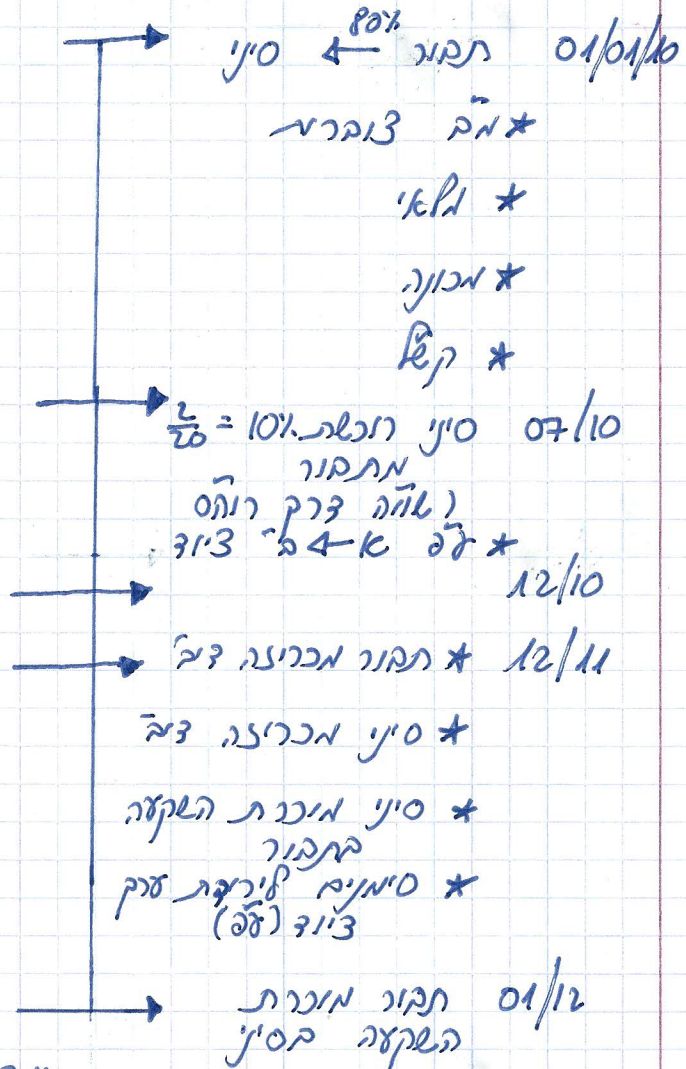 01/01/10 תבור ← 80% סיני
* מ"ב צוברת
* מלאי
* מכונה
* קש"ל
07/10 סיני רוכשת 10% = 2/20
מתבור
רשו"ה דרך רוה"ס
* ע"פ א ← ב' ציוד
12/10
12/11 * תבור מכריזה דיב'
* סיני מכריזה דיב'
* סיני מוכרת השקעה
בתבור
* סימנים לירידת ערך
ציוד (ע"פ)
01/12 תבור מוכרת
השקעה בסיני